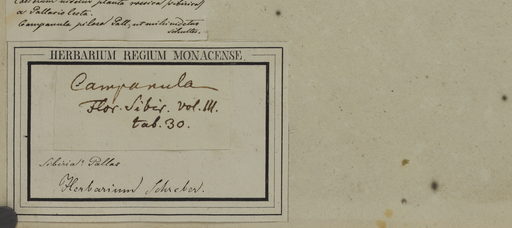 videtur, planta rossica sibirica
a Pallasio lecta.
Campanula pilosa Pall, ut mihi videtur
Schultes.
HERBARIUM REGIUM MONACENSE.
Campanula
Flor. Sibir. vol. III.
tab. 30.
Sibiria: Pallas
Herbarium Schreber.